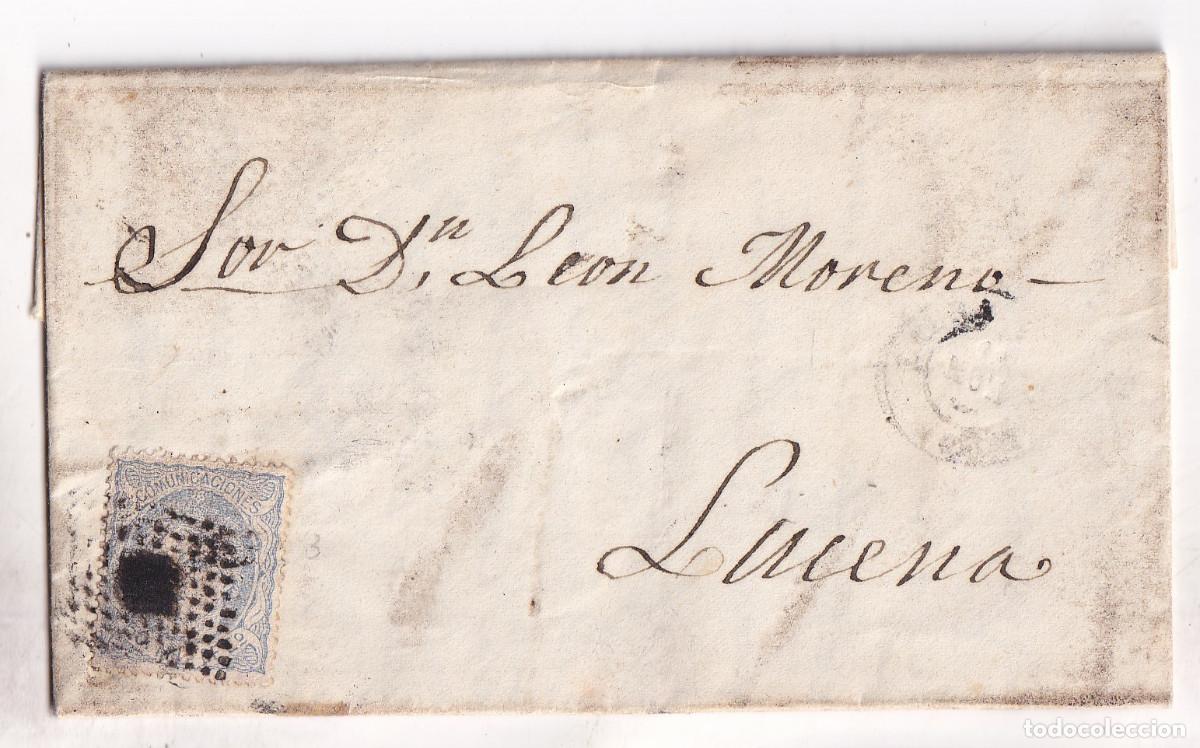 Sor Dn. Leon Moreno
Lucena
COMUNICACIONES
3
todocoleccion